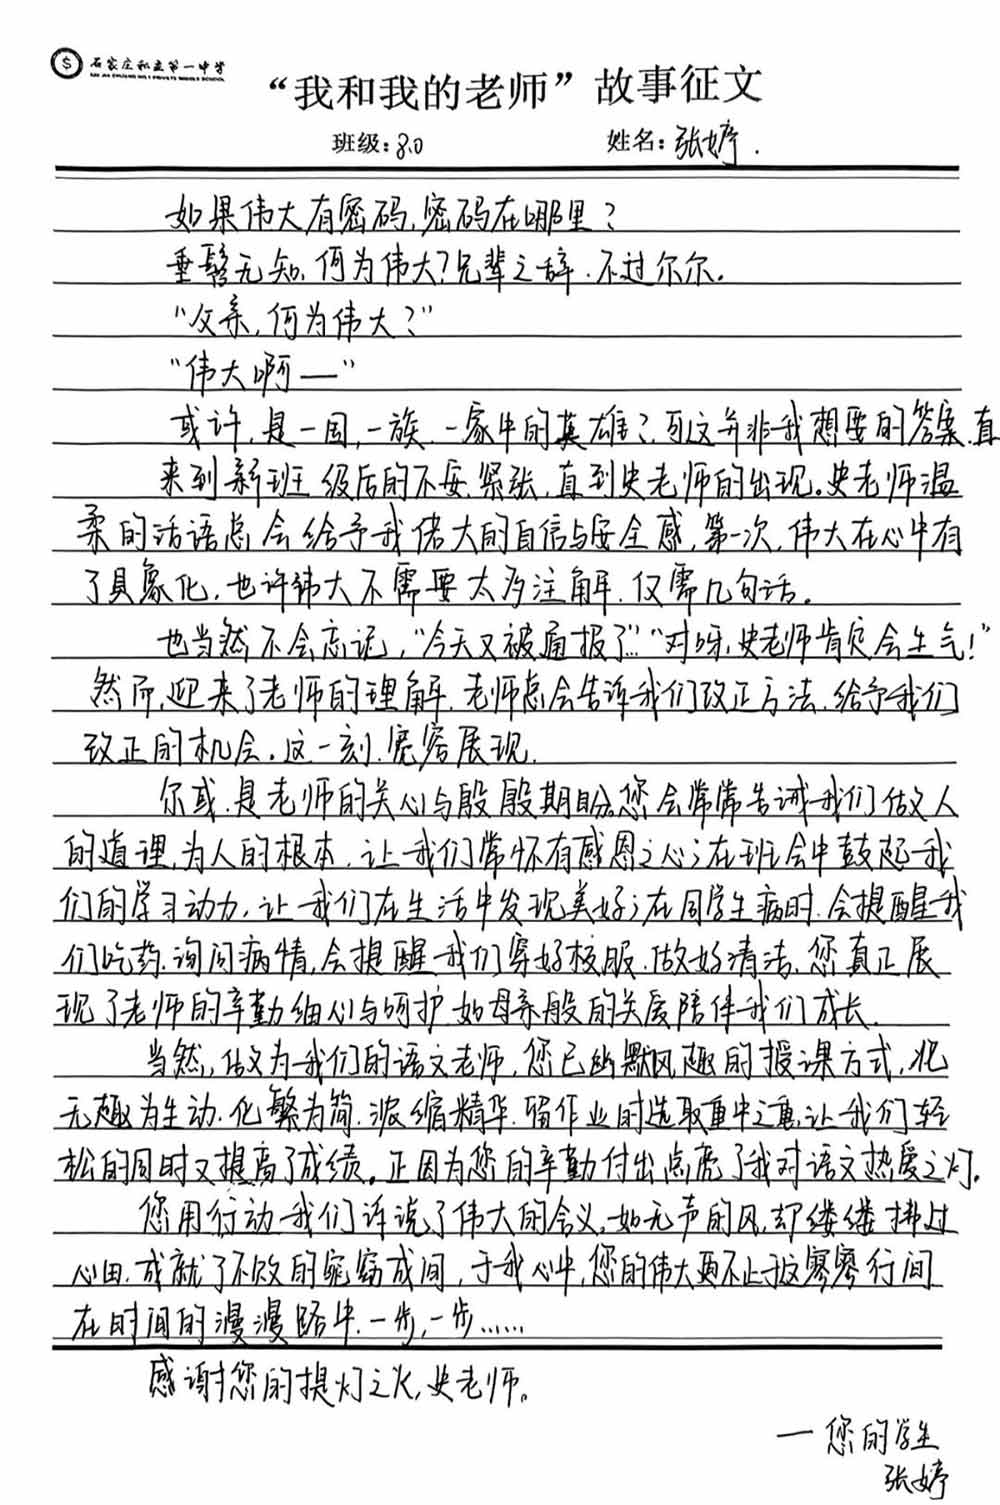 石家庄私立第一中学
“我和我的老师”故事征文
班级:8.0 姓名:张婷.
如果伟大有密码,密码在哪里?
垂髫无知,何为伟大?兄辈之辞,不过尔尔。
“父亲,何为伟大?”
“伟大啊—”
或许,是一国,一族,一家中的英雄?可这并非我想要的答案,直
来到新班级后的不安,紧张,直到史老师的出现。史老师温
柔的话语总会给予我偌大的自信与安全感,第一次,伟大在心中有
了具象化,也许伟大不需要太多注解,仅需几句话。
也当然不会忘记,“今天又被通报了…”“对呀,史老师肯定会生气!”
然而,迎来了老师的理解,老师总会告诉我们改正方法,给予我们
改正的机会。这一刻,宽容展现.
尔或,是老师的关心与殷殷期盼。您会常常告诫我们做人
的道理,为人的根本,让我们常怀有感恩之心;在班会中鼓起我
们的学习动力,让我们在生活中发现美好;在同学生病时,会提醒我
们吃药,询问病情,会提醒我们穿好校服,做好清洁,您真正展
现了老师的辛勤细心与呵护,如母亲般的关爱陪伴我们成长.
当然,做为我们的语文老师,您已幽默风趣的授课方式,化
无趣为生动,化繁为简,浓缩精华,留作业时选取重中之重,让我们轻
松的同时又提高了成绩。正因为您的辛勤付出点亮了我对语文热爱之灯.
您用行动我们诉说了伟大的含义,如无声的风,却缕缕拂过
心田,成就了不败的窕窈成间,于我心中,您的伟大更不止于这寥寥行间
在时间的漫漫路中,一步,一步……
感谢您的提灯之火,史老师。
—您的学生
张婷